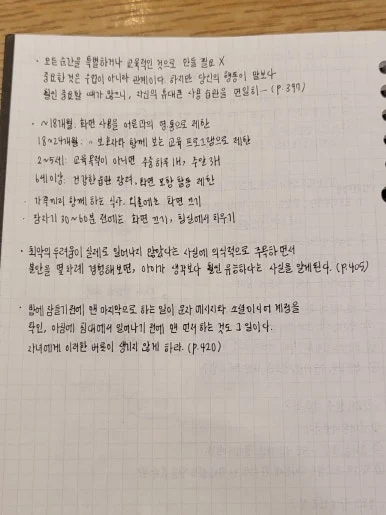 · 모든 순간을 특별하거나 교육적인 것으로 만들 필요 X
중요한 것은 수업이 아니라 관계이다. 하지만 당신의 행동이 말보다
훨씬 중요할 때가 많으니, 자신의 휴대폰 사용 습관을 면밀히~ (p.397)
· ~18개월: 화면 사용을 어른과의 영통으로 제한
18~24개월: 〃 보호자와 함께 보는 교육 프로그램으로 제한
2~5세: 교육 목적이 아니면 주중 하루 1H, 주말 3H
6세 이상: 건강한 습관 장려, 화면 포함 활동 제한
· 가족끼리 함께 하는 식사, 외출에는 화면 끄기
· 잠자기 30~60분 전에는 화면 끄기, 침실에서 치우기
· 최악의 두려움이 실제로 일어나지 않았다는 사실에 의식적으로 주목하면서
불안을 멀리하려 경험해보면, 아이가 생각보다 훨씬 유능하다는 사실을 알게 된다. (p.405)
· 밤에 잠들기 전에 맨 마지막으로 하는 일이 문자 메시지와 소셜미디어 계정을
확인, 아침에 침대에서 일어나기 전에 맨 먼저 하는 것도 그 일이다.
자녀에게 이러한 버릇이 생기지 않게 하라. (p.420)